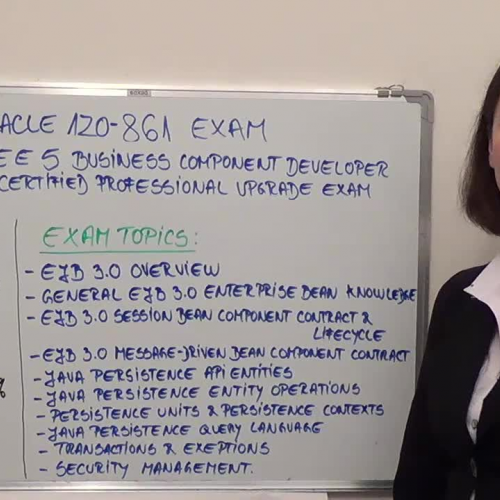 ACLE 1Z0-861 EXAM
E E 5 BUSINESS COMPONENT DEVELOPER
CERTIFIED PROFESSIONAL UPGRADE EXAM
EXAM TOPICS:
- EJB 3.0 OVERVIEW
- GENERAL EJB 3.0 ENTERPRISE BEAN KNOWLEDGE
- EJB 3.0 SESSION BEAN COMPONENT CONTRACT &
LIFECYCLE
- EJB 3.0 MESSAGE-DRIVEN BEAN COMPONENT CONTRACT
- JAVA PERSISTENCE API ENTITIES
- JAVA PERSISTENCE ENTITY OPERATIONS
%
- PERSISTENCE UNITS & PERSISTENCE CONTEXTS
- JAVA PERSISTENCE QUERY LANGUAGE
- TRANSACTIONS & EXEPTIONS
- SECURITY MANAGEMENT.